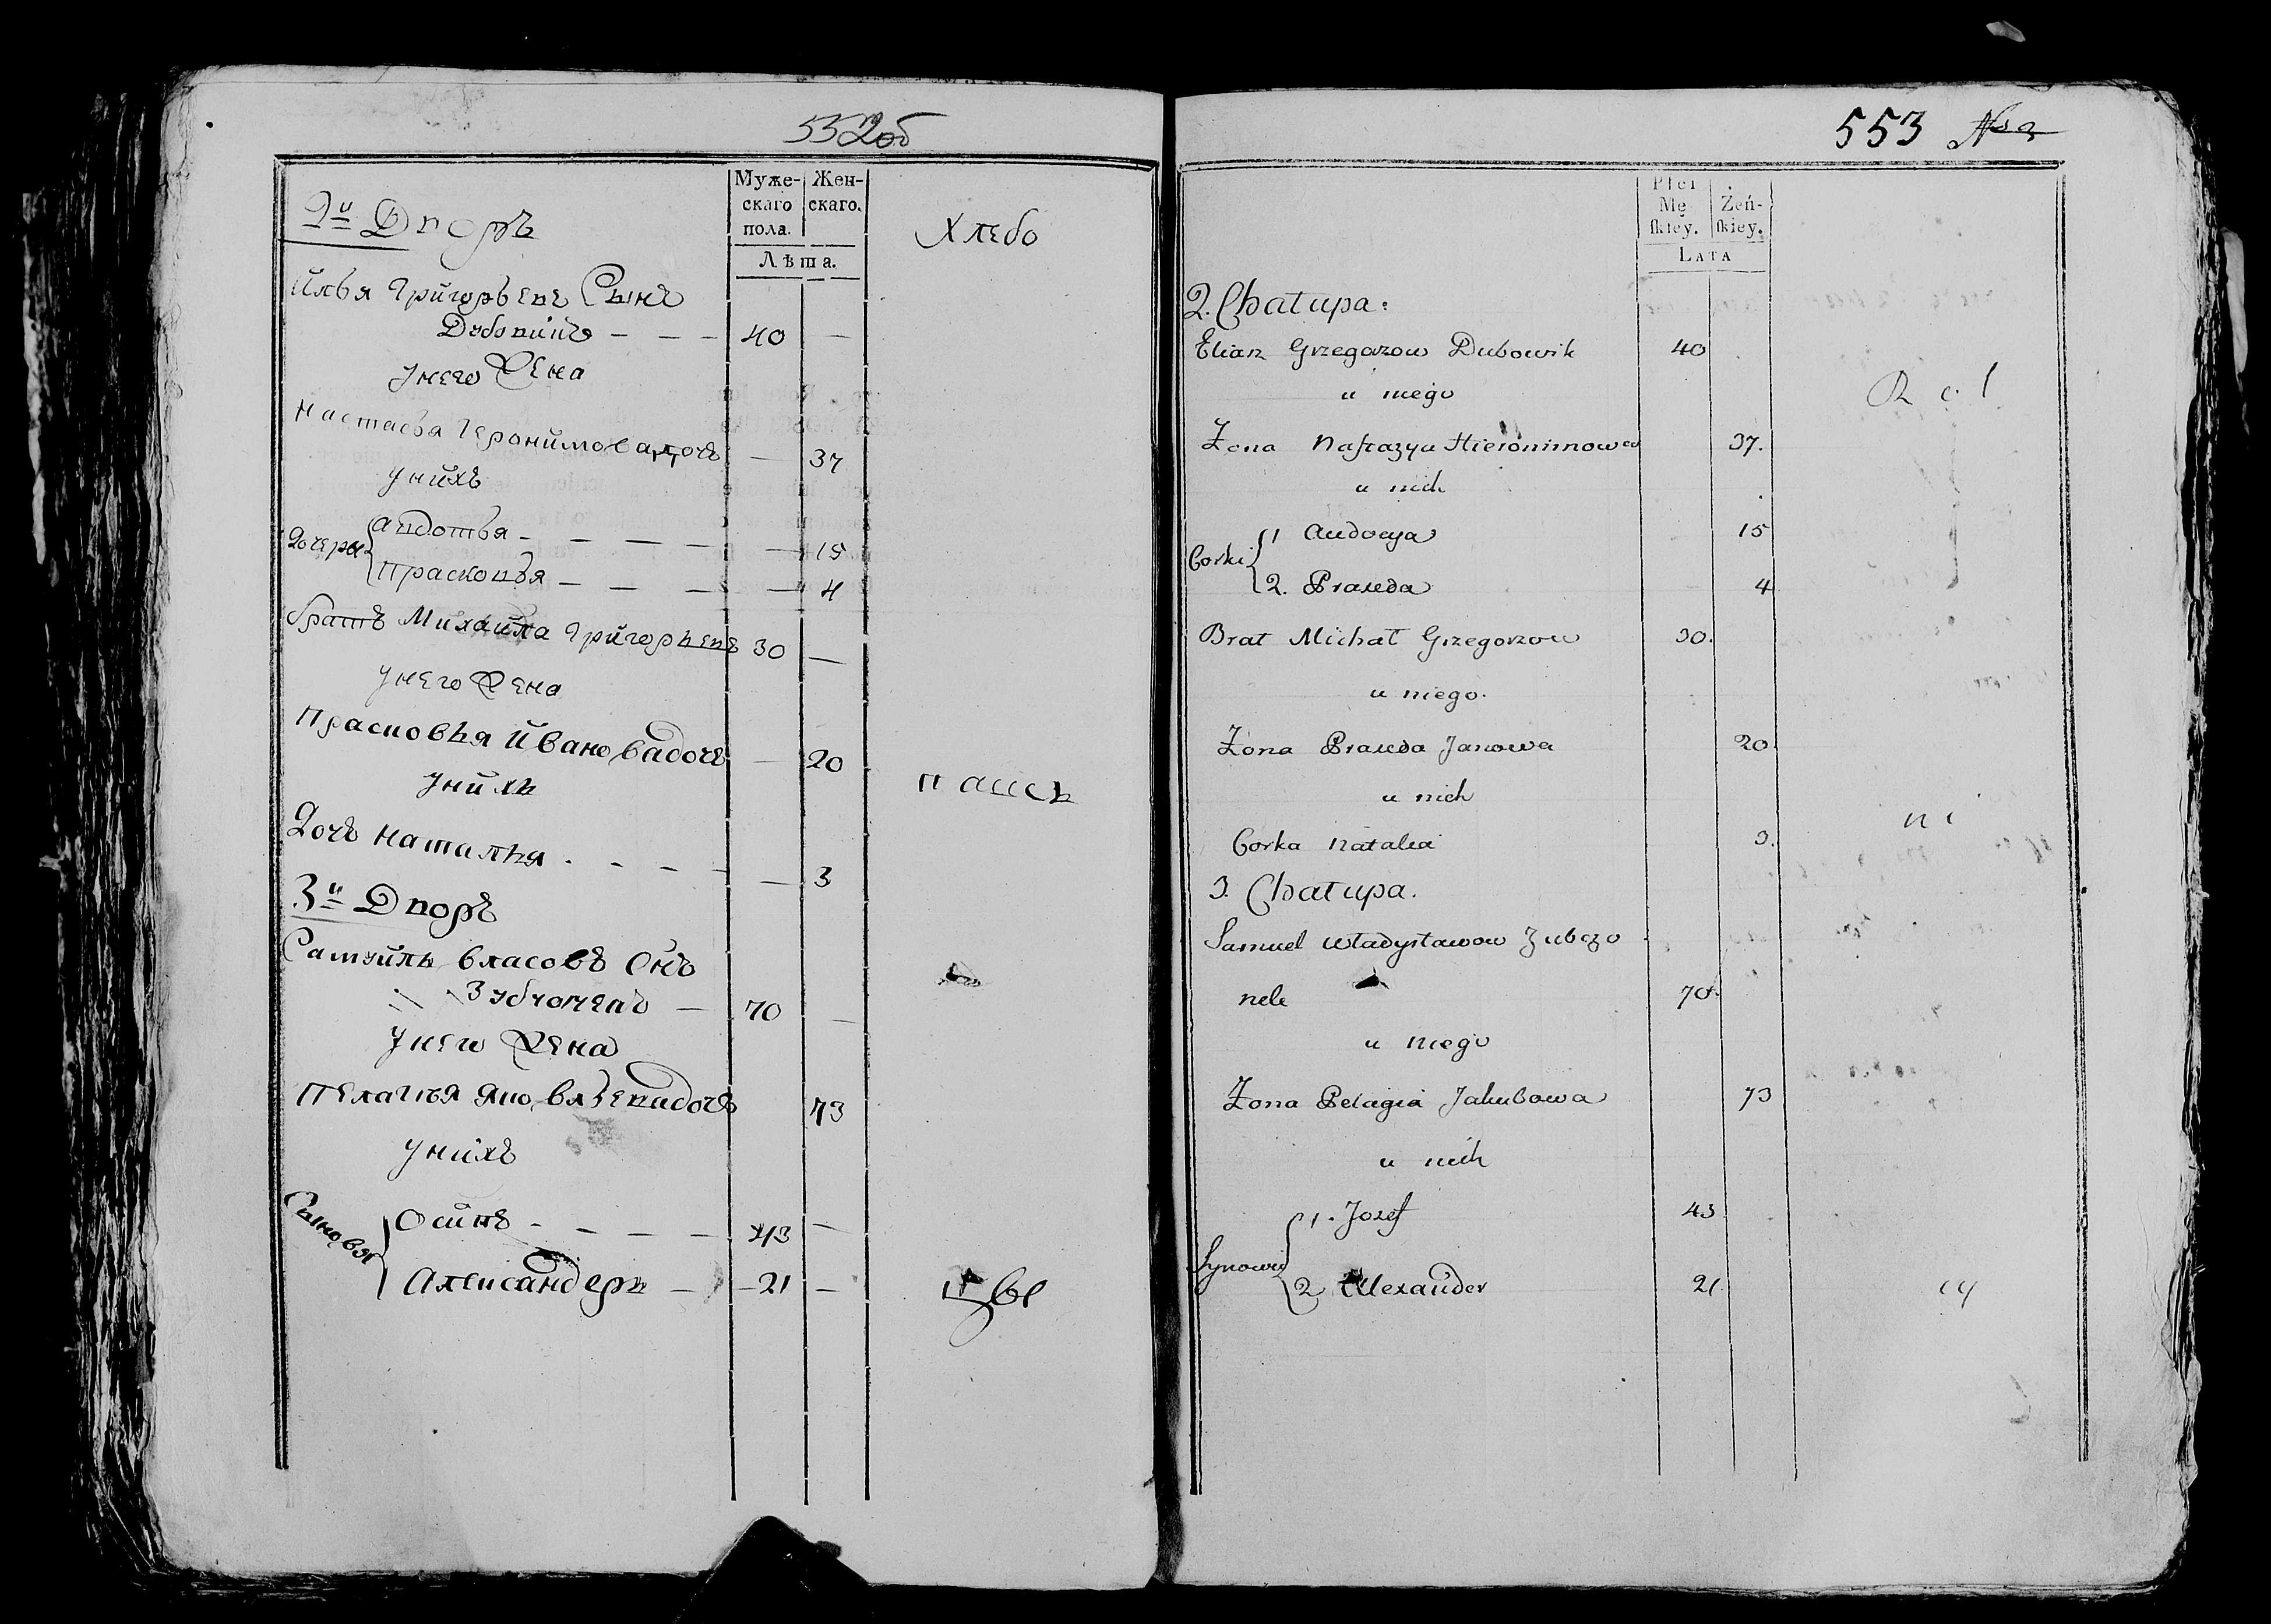 552об
Муже-
скаго
пола.
Жен-
скаго.
Лѣта.
2й Дворъ
Хлебо
Илья Григорьевъ Сынъ
Дубовикъ - - - 40 —
унего Жена
Настасья Геронимова дочь — 37
унихъ
Дочери
Авдотья - - - - — 15
Прасковья - - - - — 4
братъ Михайла Григорьевъ 30 —
унего Жена
Прасковья Иванова дочь — 20
унихъ
пашъ
Дочь Наталья - - - - — 3
3й Дворъ
Самуилъ Власовъ Снъ
Зубчонекъ — 70 —
унего Жена
Пелагия Яковлева дочь 73
унихъ
Сыновья
Осипъ - - - - 43 —
Александеръ - - 21 —
553
Płci
Mę
ſkiey.
Żeń-
ſkiey.
LATA
2. Chałupa:
Eliasz Grzegorzow Dubowik 40
u niego
R o l
Zona Nastazya Hieronimowa 37.
u nich
Corki
1 Audocya 15
2. Praxeda 4
Brat Michał Grzegorzow 30.
u niego.
Zona Praxeda Janowa 20.
u nich
n i
Corka Natalia 3.
3. Chałupa.
Samuel Władysławow Zubczo
nek 70.
u niego
Zona Pelagia Jakubowa 73
u nich
Synowie
1. Jozef 43
2 Alexander 21.
cy